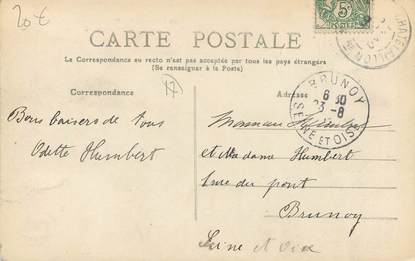 20 €
5c
CARTE POSTALE
La Correspondance au recto n'est pas acceptée par tous les pays étrangers
(Se renseigner à la Poste)
Correspondance
Adresse
BRUNOY
6 30
23-8
SEINE ET OISE
Bons baisers de tous
Odette Humbert
Monsieur Humbert
et Madame Humbert
rue du pont
Brunoy
Seine et Oise